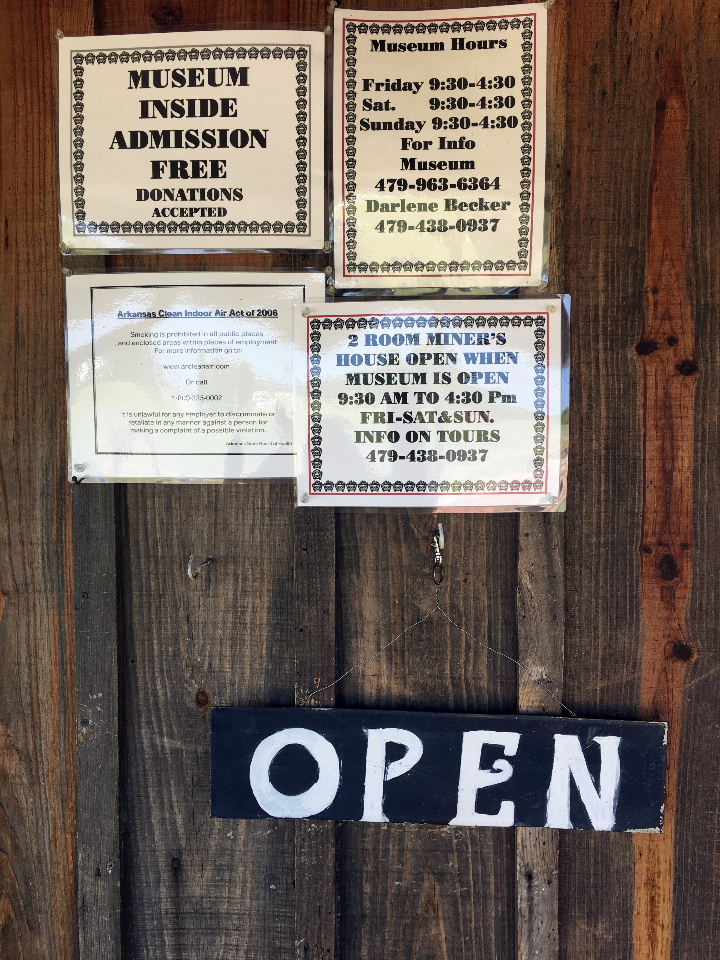 MUSEUM
INSIDE
ADMISSION
FREE
DONATIONS
ACCEPTED
Museum Hours
Friday 9:30-4:30
Sat. 9:30-4:30
Sunday 9:30-4:30
For Info
Museum
479-963-6364
Darlene Becker
479-438-0937
Arkansas Clean Indoor Air Act of 2006
Smoking is prohibited in all public places
and enclosed areas within places of employment
For more information go to:
www.arcleanair.com
Or call
1-800-235-0002
It is unlawful for any employer to discriminate or
retaliate in any manner against a person for
making a complaint of a possible violation.
Arkansas State Board of Health
2 ROOM MINER'S
HOUSE OPEN WHEN
MUSEUM IS OPEN
9:30 AM TO 4:30 Pm
FRI-SAT&SUN.
INFO ON TOURS
479-438-0937
OPEN